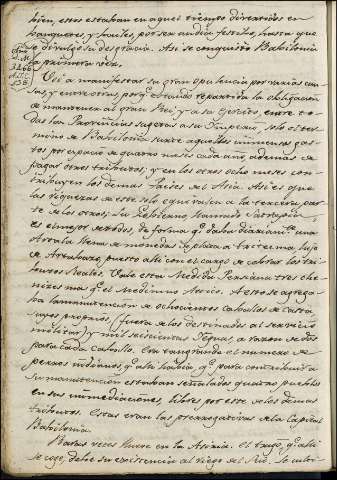 bien, estos estaban en aquel tiempo divertidos en
banquetes, y bailes, por ser aun dia festibo, hasta que
se divulgó su desgracia. Asi se conquistó Babilonia
la primera vez.
Año
D. M.
3466
A. J. C.
538
Voi a manifestar su gran opulencia por varias co-
sas, y entre otras, porq.e estando repartida la obligacion
de mantener al gran Rei, y a su Exercito, entre to-
das las Provincias sugetas a su Imperio, solo el ter-
mino de Babilonia sufre aquellos inmensos gas-
tos por espacio de quatro meses cada año, ademas de
pagar otros tributos; y en los otros ocho meses con-
tribuyen los demas Paises del Asia. Asi es que
las riquezas de este solo equivalen a la tercera par-
te de los otros; su Gobierno llamado Satrapia,
es el mejor de todos, de forma q.e daba diariam.te una
Artaba llena de monedas de plata a Tritecma hijo
de Artabazo, puesto alli con el cargo de cobrar los tri-
butos Reales. Vale esta Medida Persiana tres che-
nizes mas q.e el Medimno Atico. A esto se agrega-
ba la manutencion de ochocientos caballos de casta
suyos proprios, (fuera de los destinados al servicio
militar) y mil seiscientas Yeguas, a razon de dos
para cada caballo. Era tan grande el numero de
perros indianos, q.e alli habia, q.e para contribuir a
su manutencion estaban señalados quatro pueblos
en sus inmediaciones, libres por esto de los demas
tributos. Estas eran las prerrogativas de la Capital
Babilonia.
Raras veces llueve en la Asiria. El trigo, q.e alli
se coge, debe su existencia al riego del Rio. Se culti-